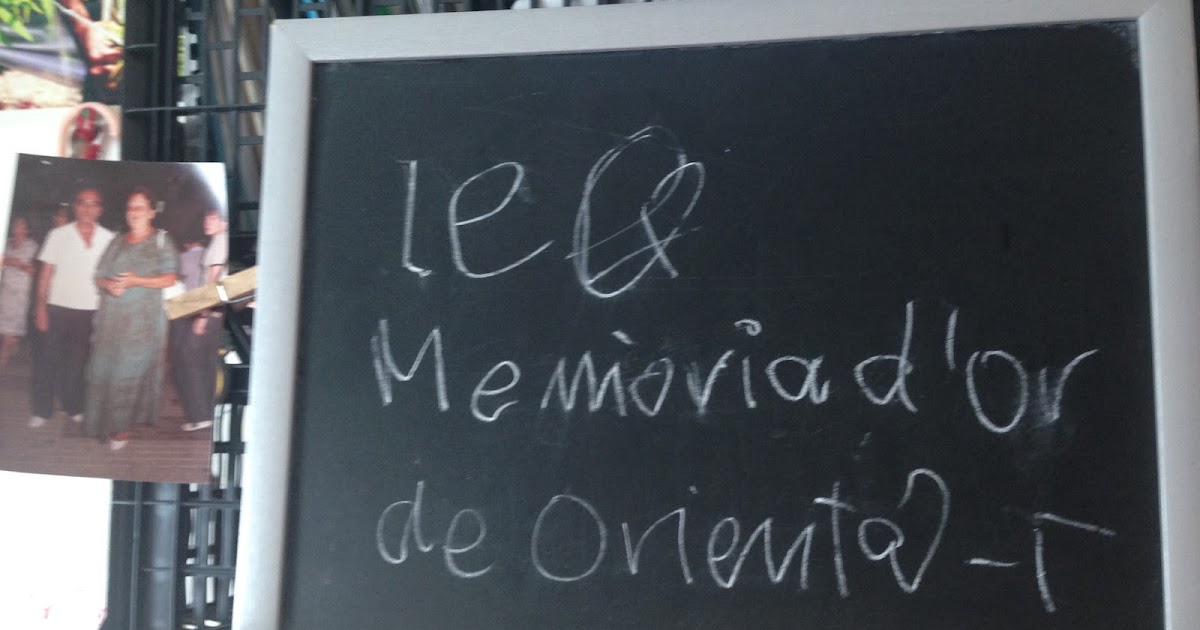 le Q
Memòria d'Or
de Orienta -T